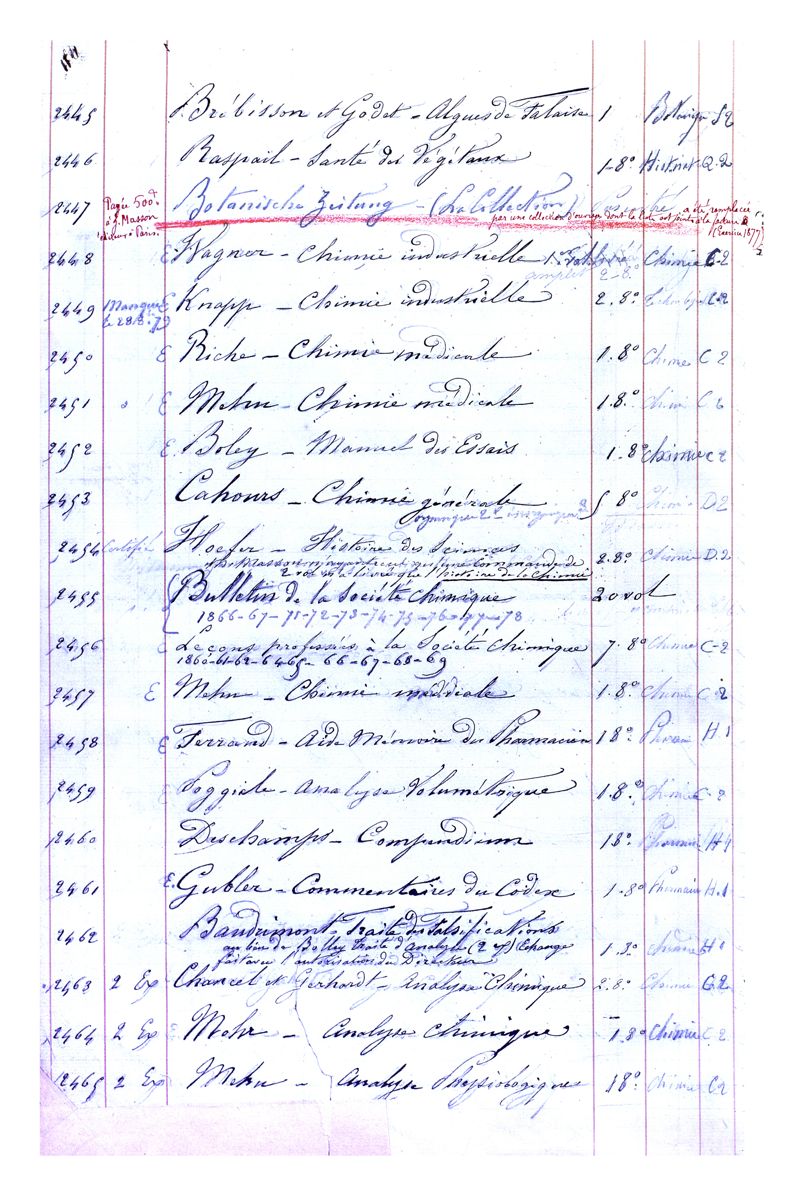 2445 Brébisson et Godet - Algues de Falaise 1 Botaniq S 2
2446 Raspail - Santé des Végétaux 1-8° Hist nat Q.2
2447 Botanische Zeitung - (La Collection)
Payée 500f.
à G. Masson
éditeur à Paris.
a été remplacée
par une collection d'ouvrages dont la liste est jointe à la facture
(Exercice 1877)
2448 E Wagner - Chimie industrielle Chimie C-2
2-8°
2449 Manque E Knapp - Chimie industrielle 2.8° C-2
le 28.8.79
2450 E Riche - Chimie médicale 1.8° Chimie C 2
2451 E Mehu - Chimie médicale 1.8° Chimie C 2
2452 E Boley - Manuel des Essais 1-8° chimie C 2
2453 Cahours - Chimie générale 8° Chimie D 2
2454 Hoefer - Histoire des Sciences 2.8° Chimie D.2
2 vol in 8 livré que l'histoire de la chimie
2455 Bulletin de la Société Chimique 20 vol
1866-67-71-72-73-74-75-76-77-78
2456 E Leçons professées à la Société Chimique 7.8° Chimie C-2
1860-61-62-64 65-66-67-68-69
2457 E Mehu - Chimie médicale 1.8° Chimie C.2
2458 E Ferrand - Aide Mémoire du Pharmacien 1 8° H.1
2459 Poggiale - Analyse Volumétrique 1.8° Chimie C-2
2460 Deschamps - Compendium 18° Pharmacie H 1
2461 E. Gubler - Commentaires du Codex 1-8° Pharmacie H.1
2462 Baudrimont - Traité des Falsifications
au lieu de Bolley traité d'analyse (2 ex) Echange 1.8° H 1
fait avec l'autorisation du Directeur
2463 2 Ex Chancel et Gerhardt - Analyse Chimique 2.8° Chimie C.2
2464 2 Ex Mohr - Analyse chimique 1.8° Chimie C.2
2465 2 Ex Mehu - Analyse Physiologiques 18° Chimie C2